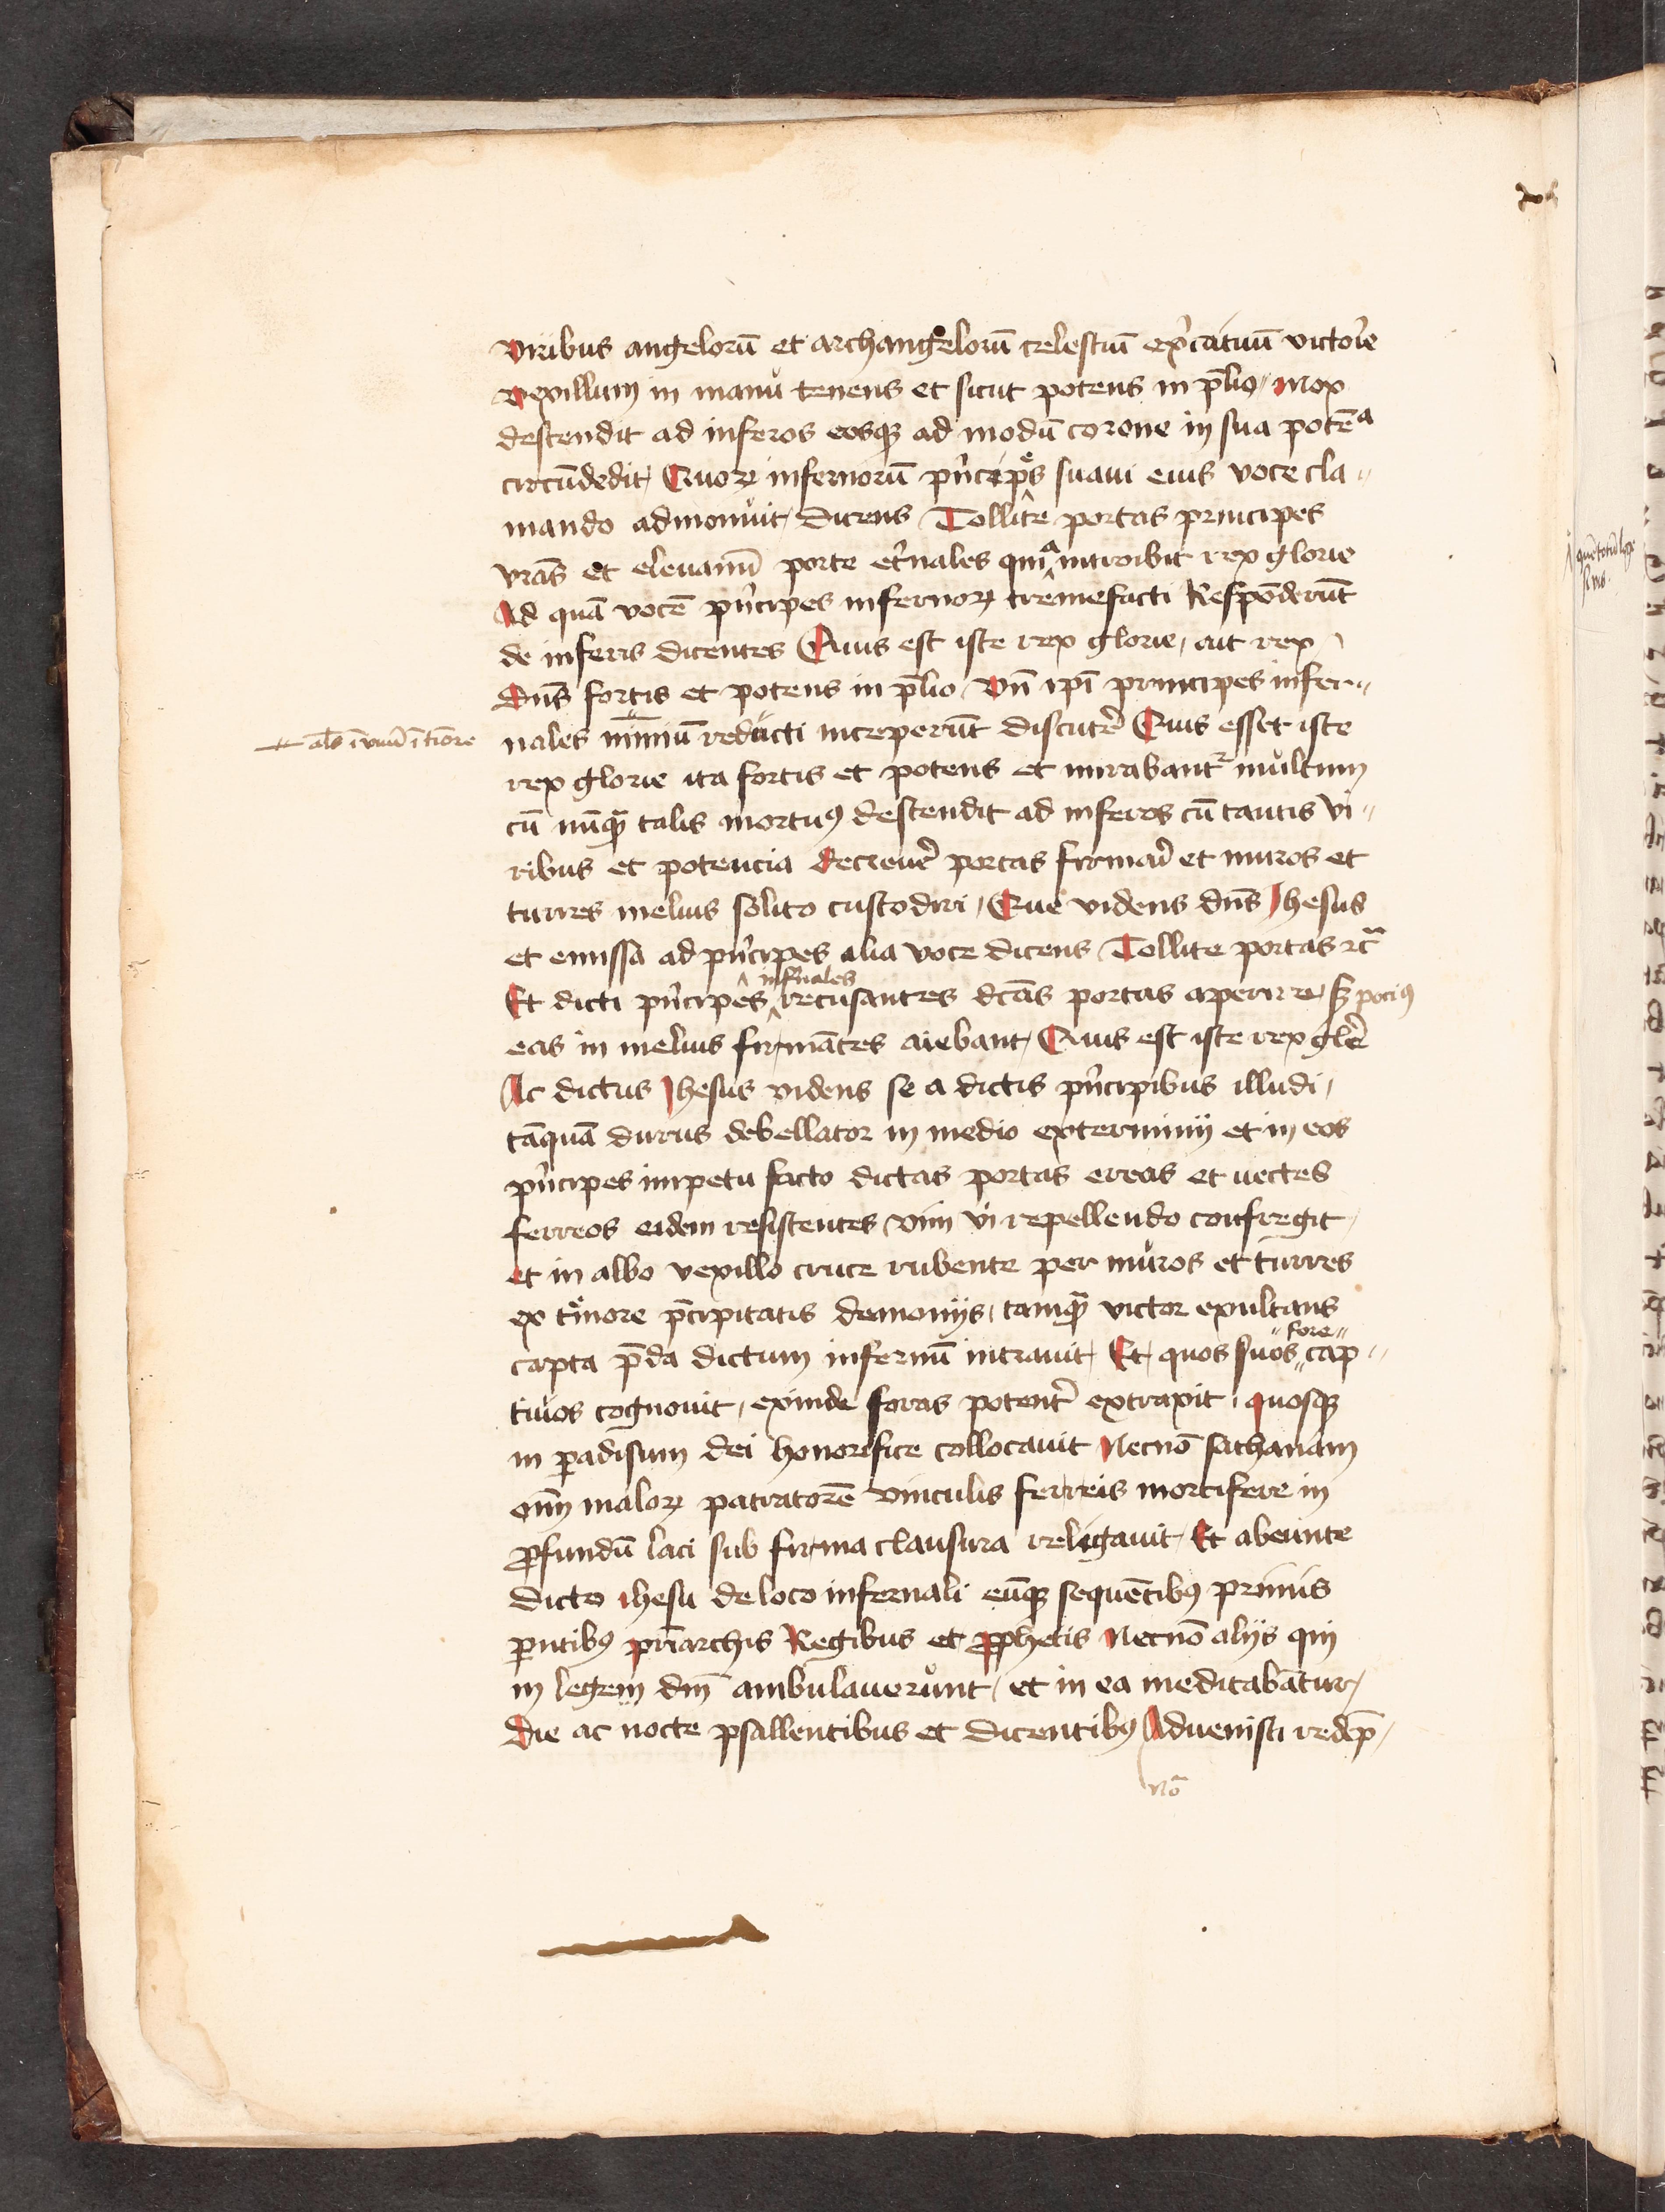 viribus angelorū et archangelorū celestiū exercituū victorie
vexillum in manu tenens et sicut potens in p̄lio mox
descendit ad inferos eosq; ad modū corone in sua potēa
circūdedit Quoꝝ infernorū pñcipes suaui eius voce cla„
mando admonuit dicens Tollite portas principes
vrās et eleuamī porte et̓nales quia introibit rex glorie
Ad quā vocē pñcipes infernoꝝ tremefacti Respōderūt
de inferis dicentes Quis est iste rex glorie ait rex
dūs fortis et potens in p̄lio Vn̄ ip̄i principes infer„
nales nimiū reducti inceperūt discuter̄ Quis esset iste
rex glorie ita fortis et potens et mirabantr̄ multum
cū nūq̄ talis mortuꝯ descendit ad inferos cū tantis vi„
ribus et potencia decreuer̄ portas firmari et muros et
turres melius solito custodiri Que videns dñs Jhesus
et emissa ad pñcipes alia voce dicens Tollite portas rc̄
infr̄nales
Et dicti pñcipes recusantes dcās portas aperire sꝫ pociꝯ
eas in melius firmātes aiebant Quis est iste rex glīe
Ac dictus Jhesus videns se a dictis pñcipibus illudi
tāquā durus debellator in medio exterminij et in eos
pñcipes impetu facto dictas portas ereas et uectes
ferreos eidem resistentes vim vi repellendo confregit
et in albo vexillo cruce rubente per muros et turres
ex timore p̄cipitatis demonijs tamq̄ victor exultans
„fore„
capta p̄da dictum infernū intrauit Et quos suos cap„
tiuos cognouit exinde foras potent̄ extraxit quosq;
in ꝑadisum dei honorifice collocauit Necnō sathanam
om̄ maloꝝ patratorē vinculis ferreis mortifere in
ꝓfundū laci sub firma clausura religauit Et abeunte
dicto ihesu de loco infernali eūq; sequētibꝯ primis
ꝑntibꝯ pri̅archis Regibus et ꝓphetis Necnō alijs qui
in legem dm̄ ambulauerunt et in ea meditabātur
die ac nocte psallentibus et dicentibꝯ Aduenisti redēp